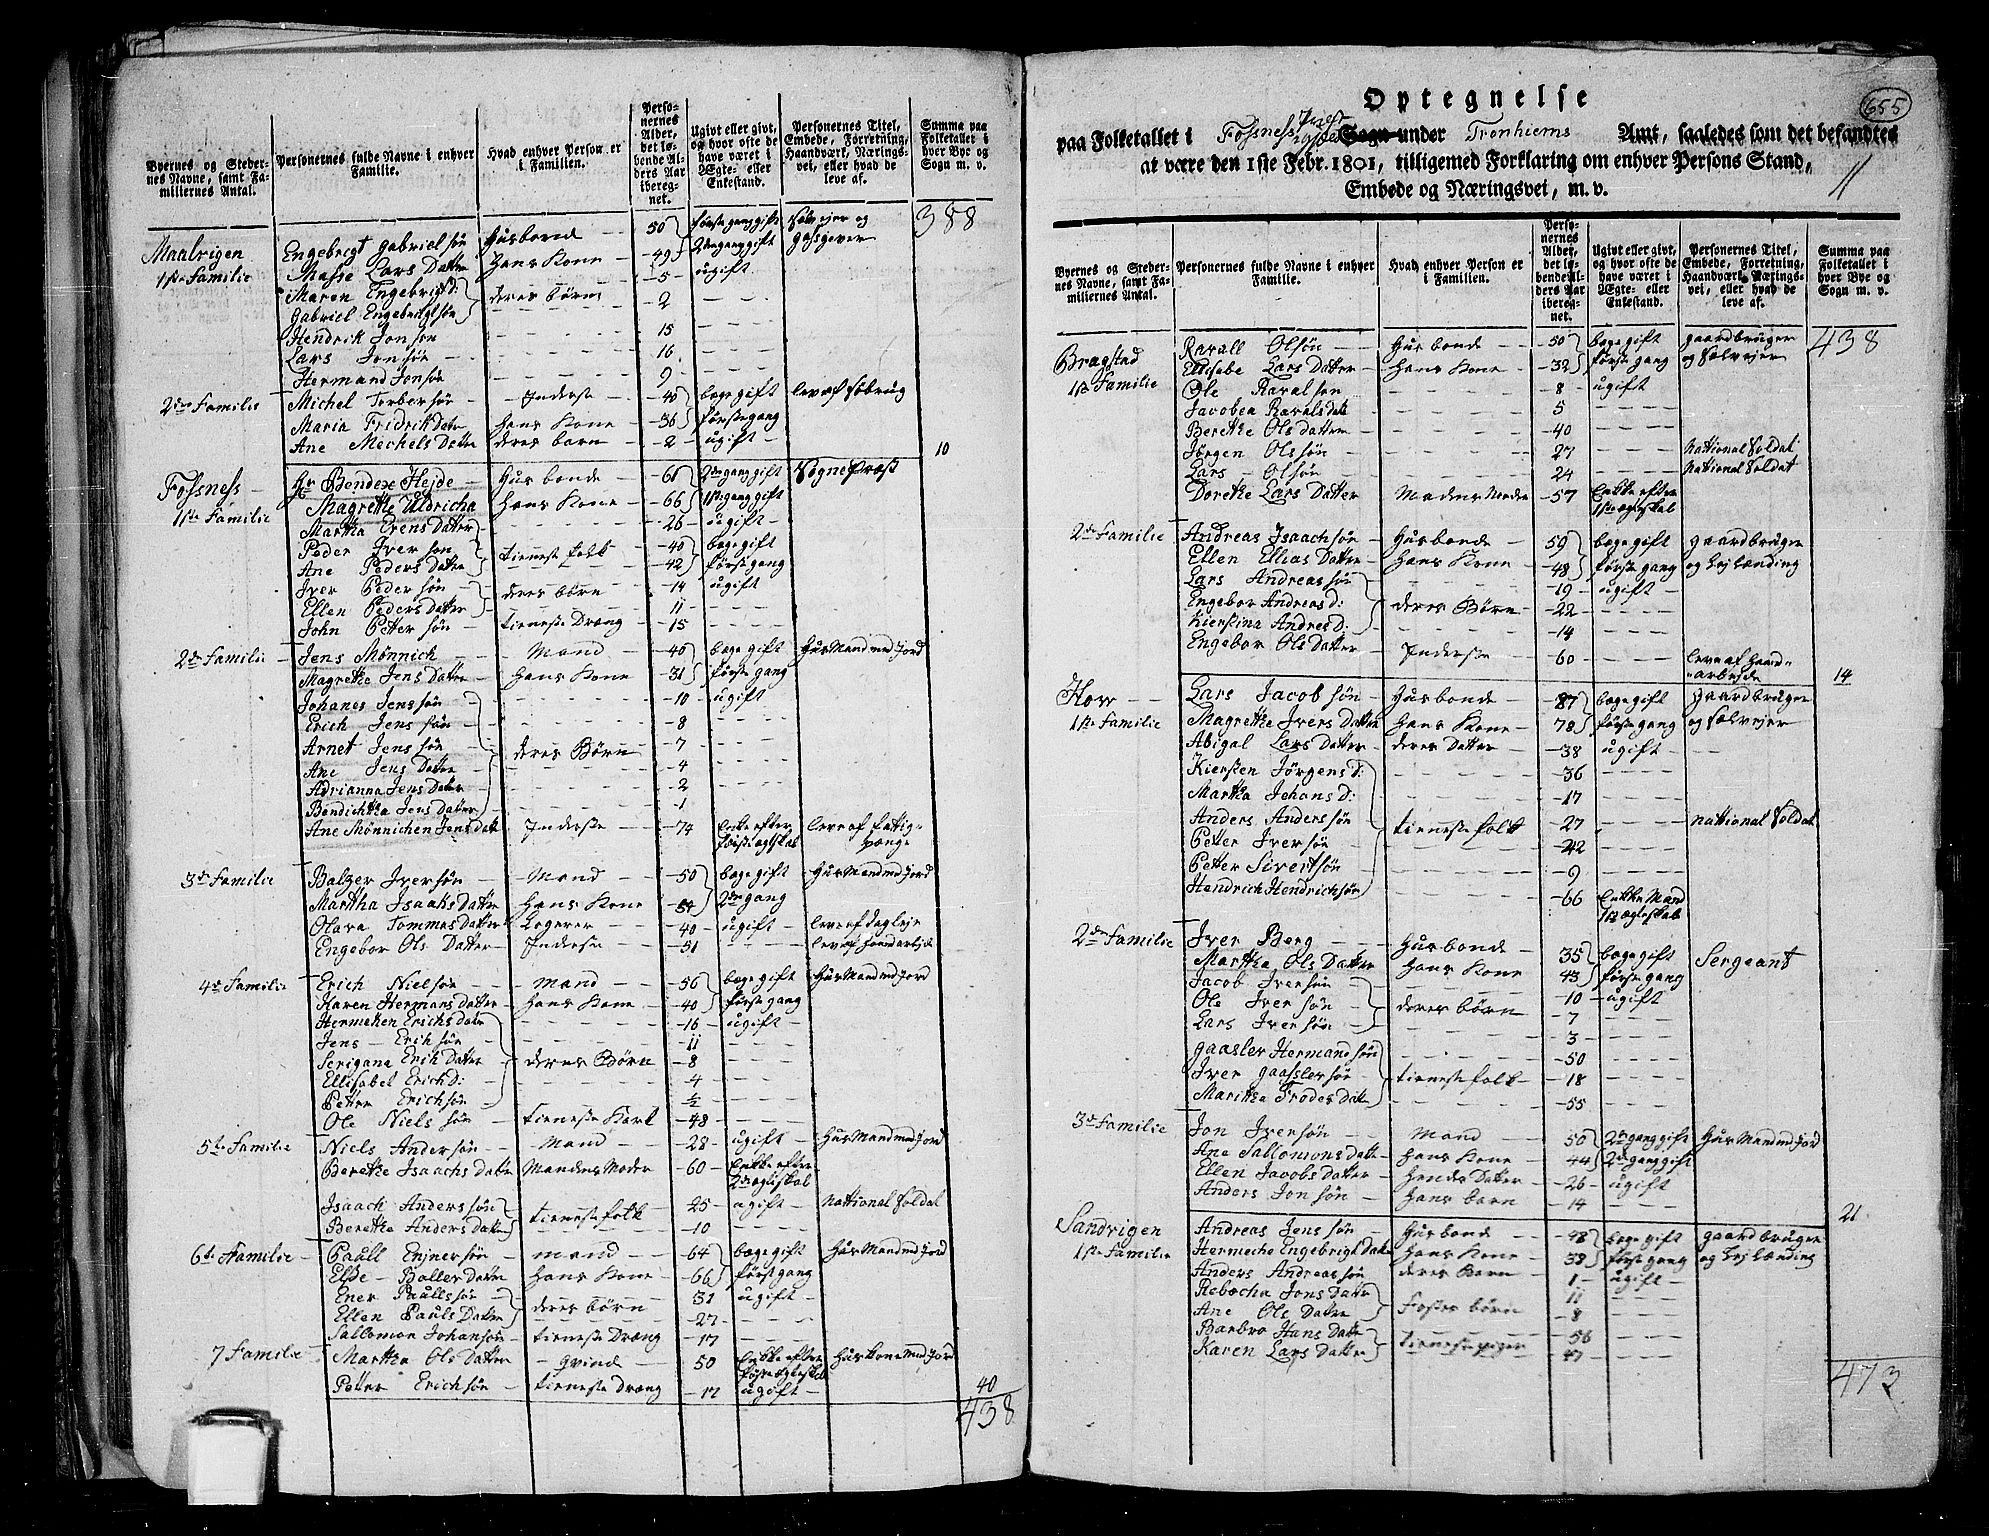 Byernes og Stedernes Navne, samt Familiernes Antal.
Personernes fulde Navne i enhver Familie.
Hvad enhver Person er i Familien.
Personernes Alder, det løbende Alders Aar iberegnet.
Ugivt eller givt, og hvor ofte de have været i Ægte- eller Enkestand.
Personernes Titel, Embede, Forretning, Haandværk, Næringsvei, eller hvad de leve af.
Summa paa Folketallet i hver Bye og Sogn m. v.
388
Maalvigen
1ste Familie Engebrigt Gabriel søn Husbonde 50 første gang gift Sælvejer og
Masse Lars Datter Hans Kone 49 2den gang gift gassgever
Maren Engebrigts D: deres børn 5 ugift
Gabriel Engebrigtsøn 2
Hendrik Jonsøn 15
Lars Jonsøn 16
Hermand Jonsøn 9
2den Familie Michel Torbersøn Inderste 40 bægge gift lev af Søbrug
Maria Fridrik Datter Hans Kone 36 første gang
Ane Mechels Datter deres barn 2 ugift
10
Fossness
1ste Familie Hr Bendex Hejde Husbonde 61 2den gang gift Sogne Præst
Magrethe Uldricha Hans Kone 66 1ste gang gift
Martha Evens Datter 26 ugift
Peder Iver søn tieneste folk 40 bægge gift
Ane Peders Datter 42 første gang
Iver Peder søn deres børn 14 ugift
Ellen Peders datter 11
John Petter søn tieneste Dræng 15
2den Familie Jens Mønnich Mand 40 bægge gift Huus Mand med Jord
Magrethe Jens Datter Hans Kone 31 første gang
Johanes Jens søn 10 ugift
Erich Jens søn 8
Arnet Jens søn deres Børn 7
Ane Jens Datter 4
Adrianna Jens Dater 2
Bendichtha Jens Dater 1
Ane Mønnichen Jens dat Inderste 74 Enke efter leve af fattig-
første ægteskab pænge
3de Familie Balzer Iver søn Mand 50 bægge gift Huus Mand med Jord
Martha Isaaks Datter Hans Kone 54 2den gang
Olava Tommes Datter Logerer 40 ugift leve af dagleje
Engebor Ols Datter Inderste 51 leve af haandarbejde
4de Familie Erich Nielsøn Mand 56 bægge gift Huus Mand med Jord
Karen Hermans Datter Hans Kone 40 første gang
Hermeken Erichs dater 16 ugift
Jens Erich søn 11
Serigana Erich Datter deres Børn 8
Ellisabet Erich D: 4
Petter Erichsøn ½
Ole Niels søn tieneste Karl 48
5te Familie Niels Andersøn Mand 28 ugift Huus Mand med Jord
Berethe Isaachs Datter Mandens Moder 60 Enke efter
2den ægteskab
Isaach Anders søn tieneste folk 25 ugift National Soldat
Berethe Anders Datter 10
6te Familie Paull Enjnersøn mand 64 bægge gift Huus Mand med Jord
Else Baller Datter Hans Kone 66 første gang
Ener Paulls søn deres børn 31 ugift
Ellen Pauls Datter 27
Sallomon Johansøn tieneste Dræng 17
7 Familie Martha Ols Datter qvinde 50 Enke efter Huus kone med Jord
første ægteskab
Petter Erich søn tieneste Dræng 17 ugift
40
438
655
Optegnelse
paa Folketallet i Fossness Præstegield Sogn under Tronhiems Amt, saaledes som det befandtes
at være den 1ste Febr. 1801, tilligemed Forklaring om enhver Persons Stand,
Embede og Næringsvei, m. v.
11
Byernes og Stedernes Navne, samt Familiernes Antal.
Personernes fulde Navne i enhver Familie.
Hvad enhver Person er i Familien.
Personernes Alder, det løbende Alders Aar iberegnet.
Ugivt eller givt, og hvor ofte de have været i Ægte- eller Enkestand.
Personernes Titel, Embede, Forretning, Haandværk, Næringsvei, eller hvad de leve af.
Summa paa Folketallet i hver Bye og Sogn m. v.
438
Bragstad
1ste Familie Ravall Olsøn Husbonde 50 bægge gift gaardbruger
Ellisabe Lars Datter Hans Kone 32 første gang og Sælvejer
Ole Raval søn 8 ugift
Jacobea Ravals dat 5
Berethe Ols datter 40
Jørgen Ols søn 27 National Soldat
Lars Olsøn 24 National Soldat
Dorethe Lars Datter Madens Moder 57 Enke efter
1ste ægteskab
2de Familie Andreas Isaach søn Husbonde 59 bægge gift gaardbruger
Ellen Ellias Datter Hans Kone 48 første gang og Lejlænding
Lars Andreas søn 19 ugift
Engebor Andreas d: deres Børn 22
Kierstina Andreas D: 14
Engebor Ols Datter Inderste 60 leve af haand-
arbejde
14
How
1ste Familie Lars Jacob søn Husbonde 87 bægge gift gaardbruger
Magrethe Ivers Datter Hans Kone 78 første gang og Sælvejer
Abigal Lars Datter deres Datter 38 ugift
Kiersten Jørgens d: 36
Martha Johans d: 17
Anders Anders søn tieneste folk 27 national Soldat
Petter Iver søn 22
Petter Sivert søn 9
Hendrich Hendrichsøn 66 Enke Mand
1ste ægteskab
2den Familie Iver Berg Husbonde 35 bægge gift Sergeant
Martha Ols Datter Hans Kone 43 første gang
Jacob Iver søn 10 ugift
Ole Iver søn deres børn 7
Lars Iver søn 3
Gaasler Hermand søn 50
Iver Gaassler søn tieneste folk 18
Maritha Trodes Dater 55
3de Familie Jon Iversøn Mand 50 2den gang gift Huus Mand med Jord
Ane Sallomons Datter Hans Kone 44 2den gang gift
Ellen Jacobs Datter Hendes Datter 26 ugift
Anders Jon søn Hans barn 14
21
Sandvigen
1ste Familie Andreas Jens søn Husbonde 48 bægge gift gaardbruger
Hermeche Engebrigt Dater Hans Kone 38 første gang og Lejlænding
Anders Andreas søn deres Barn 1 ugift
Rebecha Jons Dater Foster børn 11
Ane Ols Dater 8
Barbro Hans Dater tieneste piger 56
Karen Lars Datter 47
473